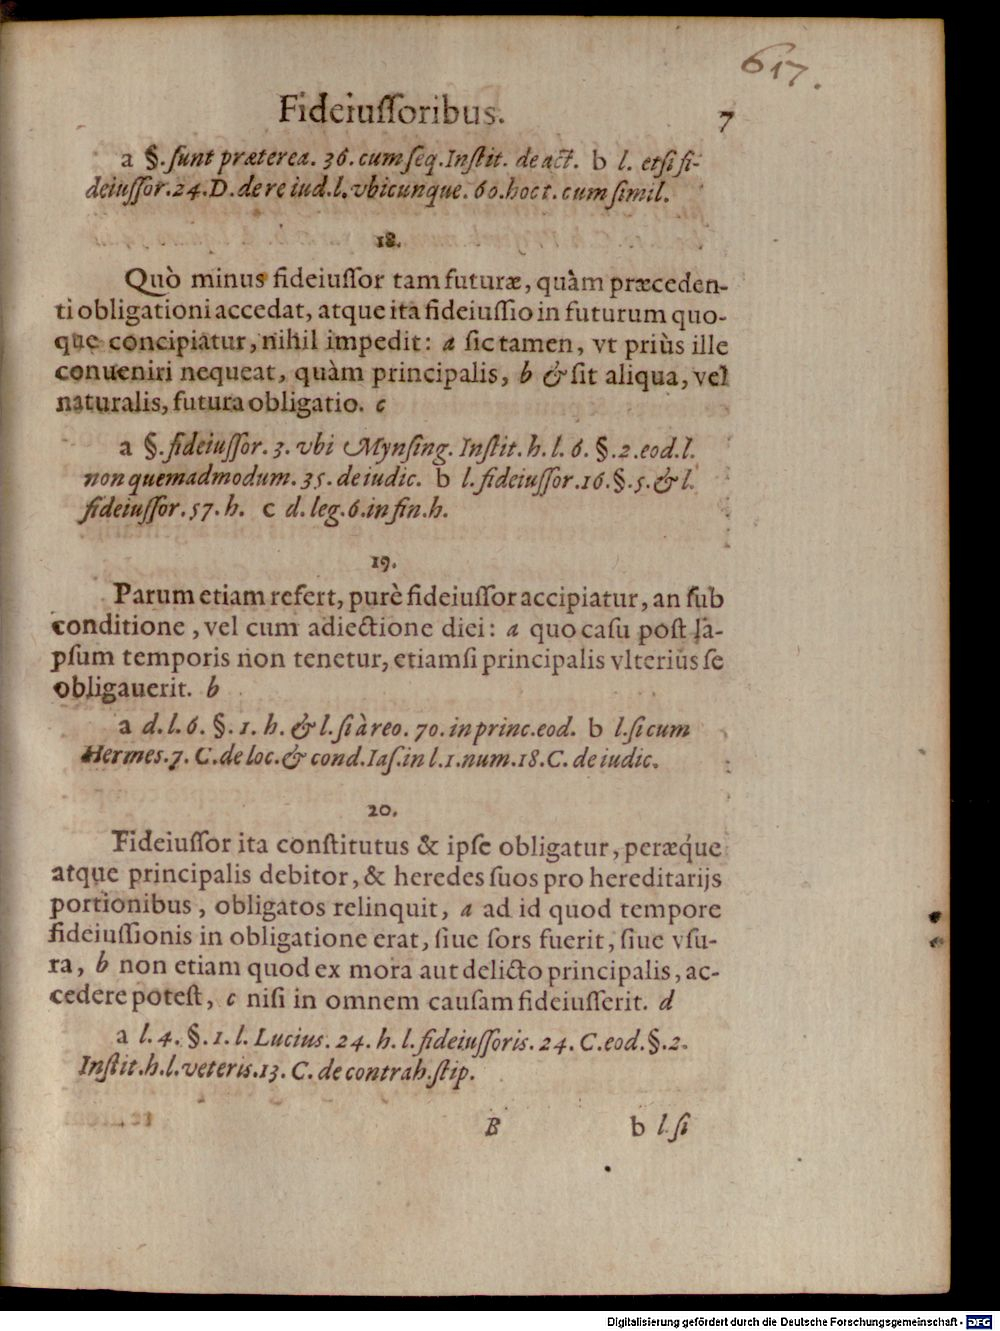 617.
Fideiuſſoribus. 7
a §. ſunt præterea. 36. cum ſeq. Inſtit. de act. b l. etſi fi-
deiuſſor. 24. D. de re iud. l. vbicunque. 60. hoc t. cum ſimil.
18.
Quò minus fideiuſſor tam futuræ, quàm præceden-
ti obligationi accedat, atque ita fideiuſſio in futurum quo-
que concipiatur, nihil impedit: a ſic tamen, vt priùs ille
conueniri nequeat, quàm principalis, b & ſit aliqua, vel
naturalis, futura obligatio. c
a §. fideiuſſor. 3. vbi Mynſing. Inſtit. h. l. 6. §. 2. eod. l.
non quemadmodum. 35. de iudic. b l. fideiuſſor. 16. §. 5. & l.
fideiuſſor. 57. h. c d. leg. 6. in fin. h.
19.
Parum etiam refert, purè fideiuſſor accipiatur, an ſub
conditione, vel cum adiectione diei: a quo caſu poſt la-
pſum temporis non tenetur, etiamſi principalis vlterius ſe
obligauerit. b
a d. l. 6. §. 1. h. & l. ſi à reo. 70. in princ. eod. b l. ſi cum
Hermes. 7. C. de loc. & cond. Iaſ. in l. 1. num. 18. C. de iudic.
20.
Fideiuſſor ita conſtitutus & ipſe obligatur, peræque
atque principalis debitor, & heredes ſuos pro hereditarijs
portionibus, obligatos relinquit, a ad id quod tempore
fideiuſſionis in obligatione erat, ſiue ſors fuerit, ſiue vſu-
ra, b non etiam quod ex mora aut delicto principalis, ac-
cedere poteſt, c niſi in omnem cauſam fideiuſſerit. d
a l. 4. §. 1. l. Lucius. 24. h. l. fideiuſſoris. 24. C. eod. §. 2.
Inſtit. h. l. veteris. 13. C. de contrah. ſtip.
B b l. ſi
Digitalisierung gefördert durch die Deutsche Forschungsgemeinschaft - DFG